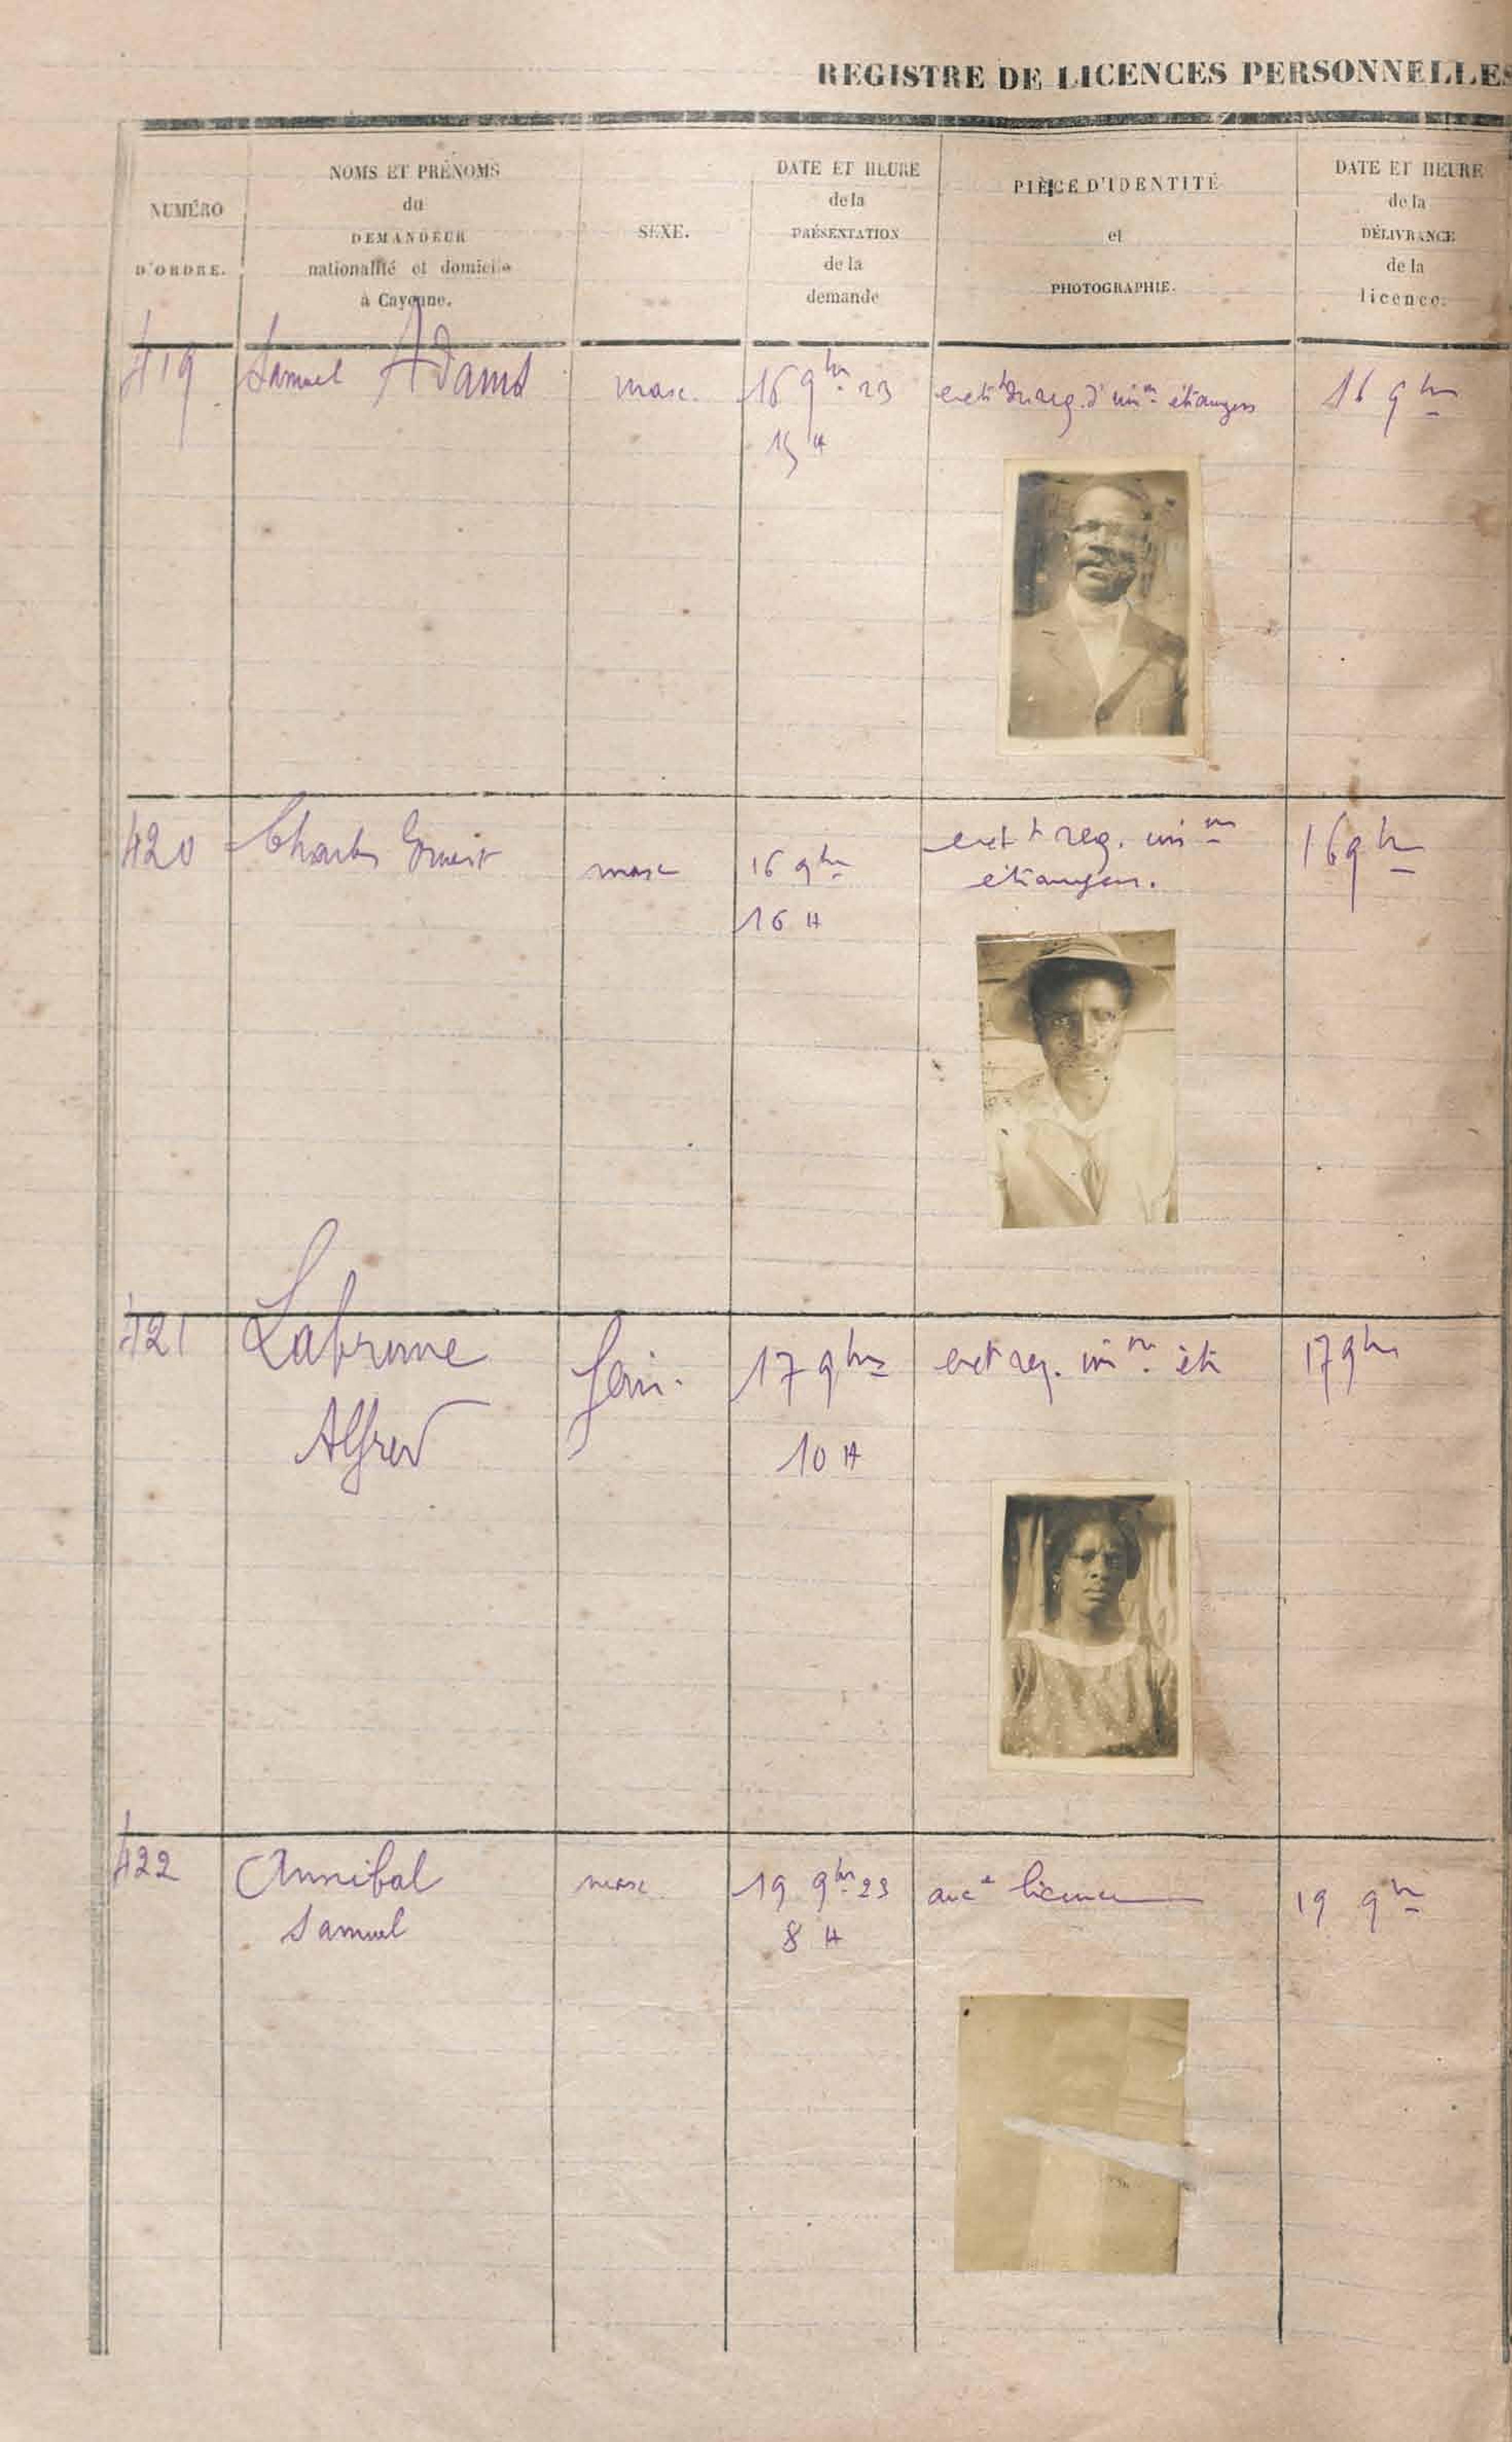 REGISTRE DE LICENCES PERSONNELLES
NUMÉRO
D'ORDRE.
NOMS ET PRÉNOMS
du
DEMANDEUR
nationalité et domicile
à Cayenne.
SEXE.
DATE ET HEURE
de la
PRÉSENTATION
de la
demande
PIÈCE D'IDENTITÉ
et
PHOTOGRAPHIE.
DATE ET HEURE
de la
DÉLIVRANCE
de la
licence.
419
Samuel Adams
masc.
16 9bre 23
15 H
du reg. d'imon étrangers
16 9bre
420
Charles Ernest
masc
16 9bre
16 H
reg. imon
étrangers.
16 9bre
421
Labrune
Alfred
fem.
17 9bre
10 H
reg. imon. ét
17 9bre
422
Annibal
Samuel
masc.
19 9bre 23
8 H
ance licence
19 9bre